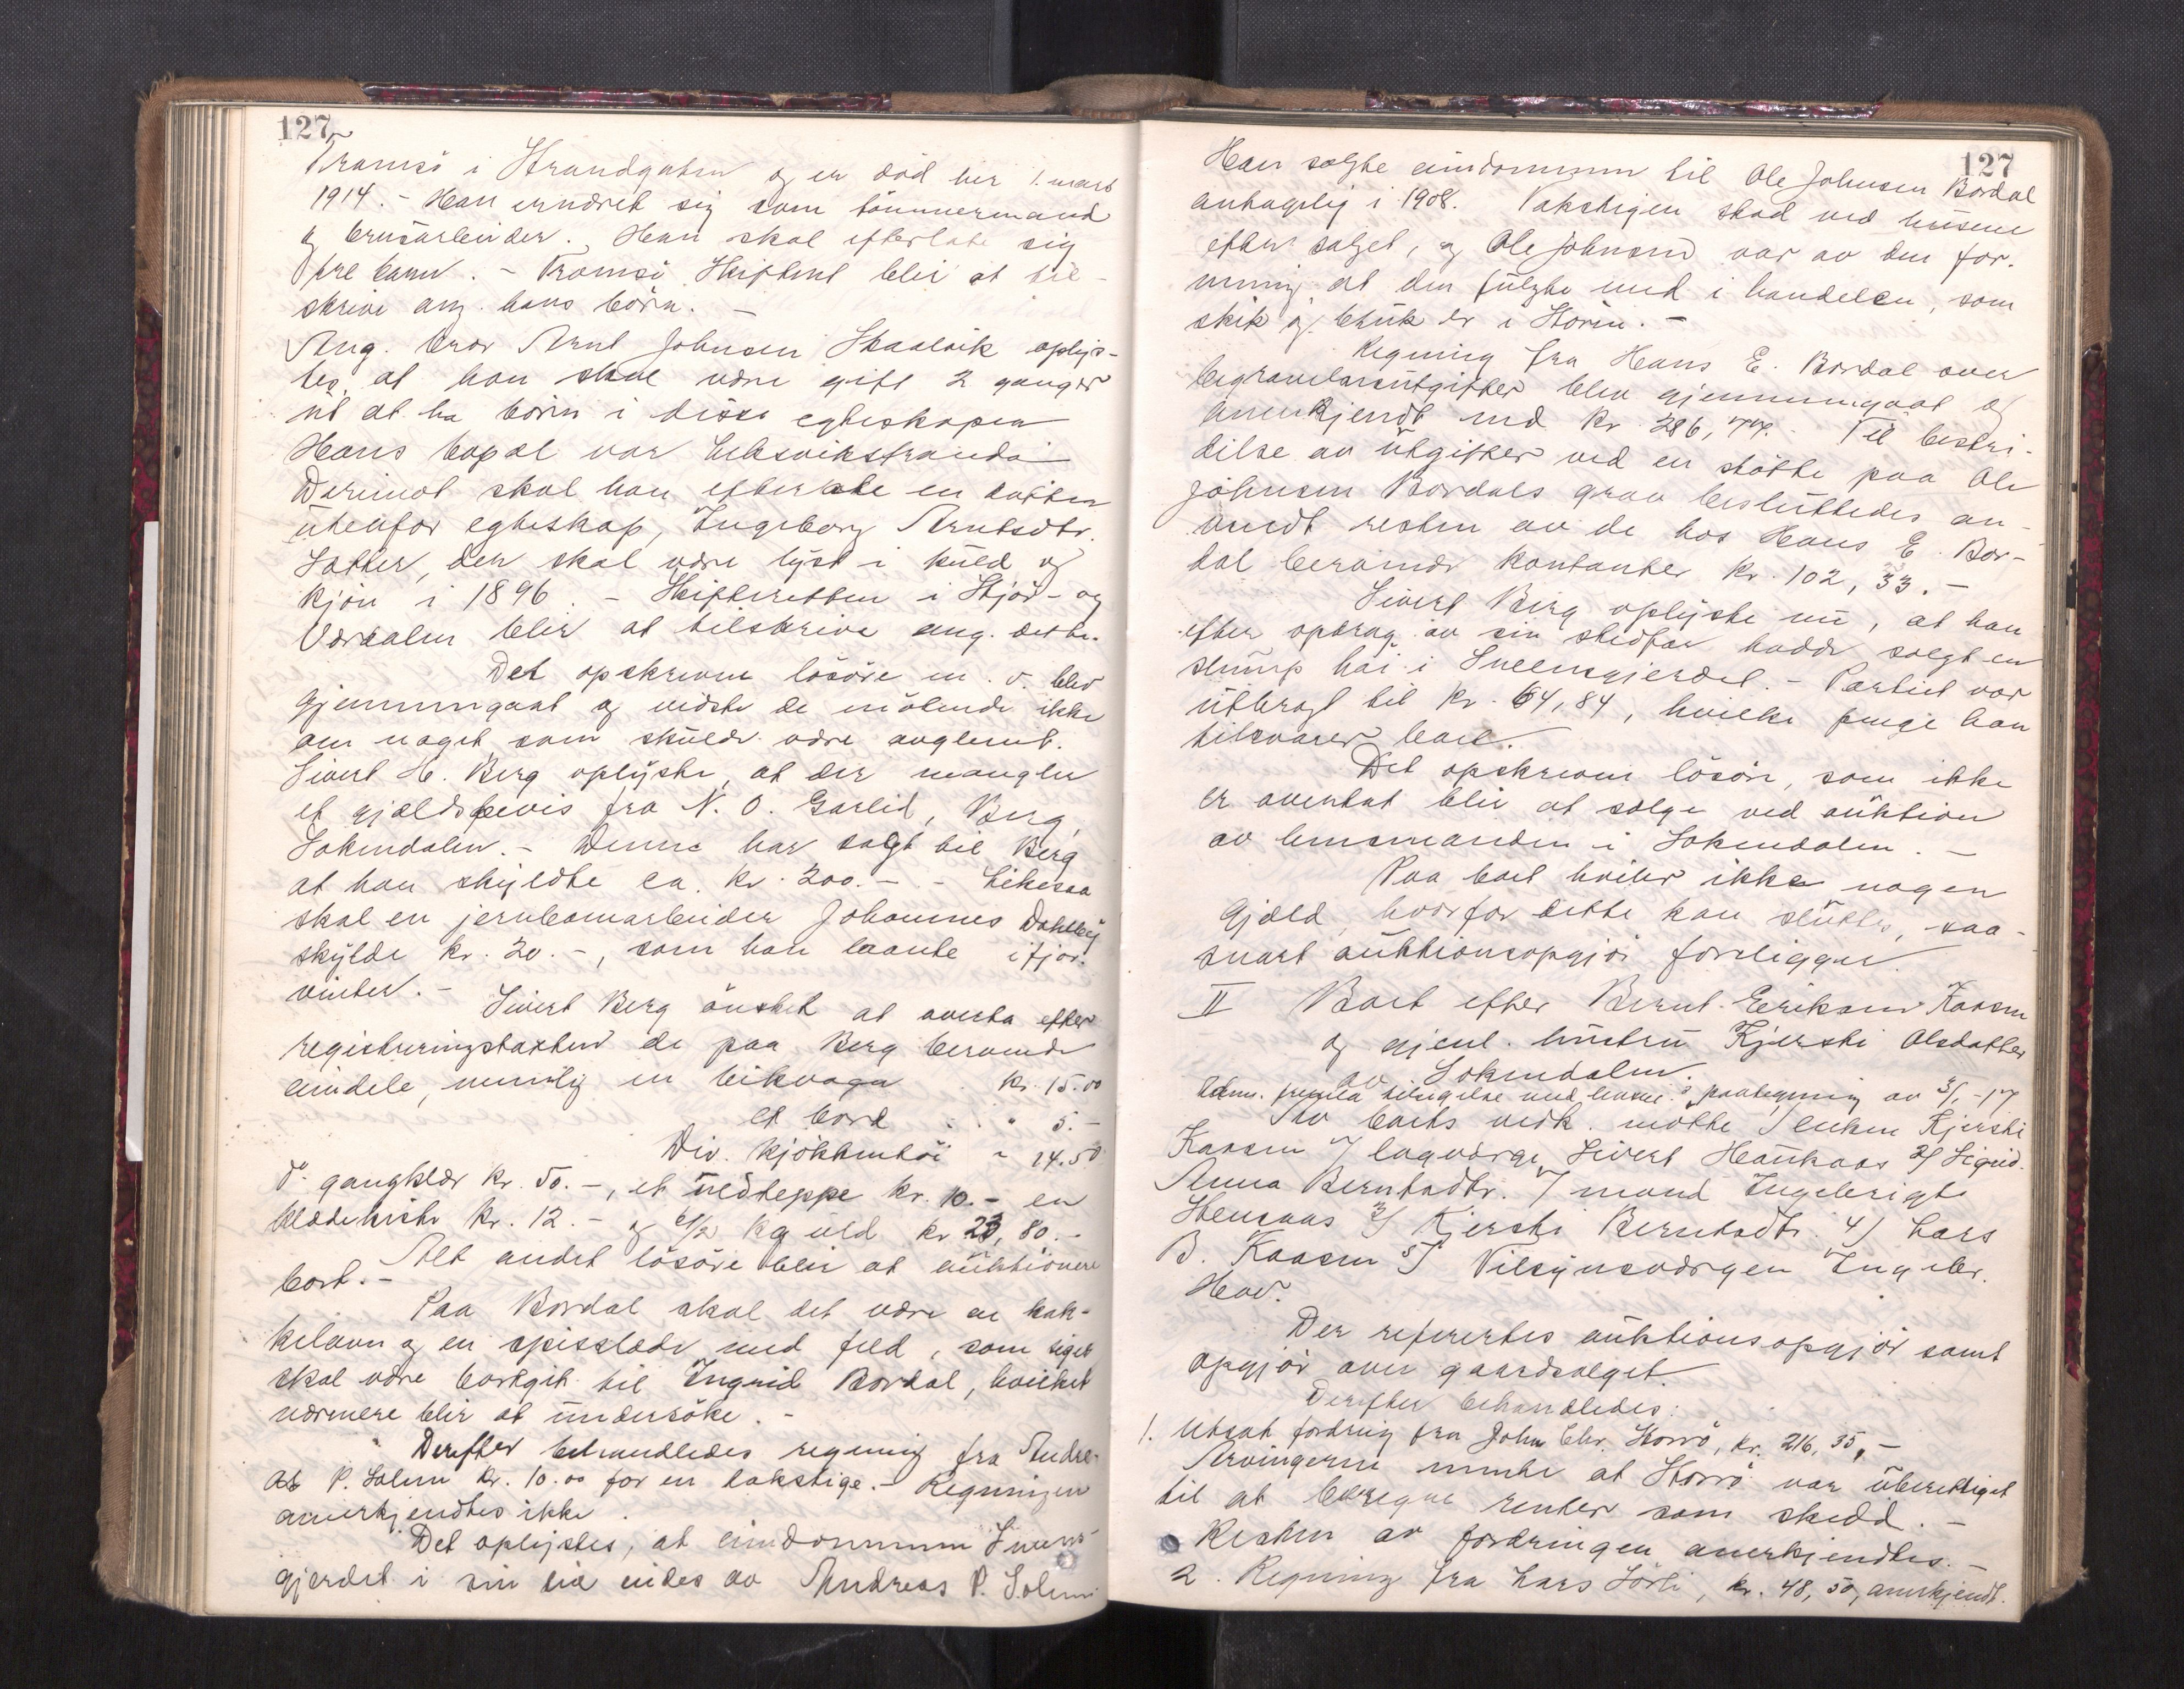 127
Tromsö i Strandgaten og er död her 1. mars
1914. - Han ernæret sig som tömmermand
og brusarbeider. Han skal efterlate sig
tre barn. - Tromsö Skifteret blir at til-
skrive ang. hans börn. -
Ang. bror Arnt Johnsen Skaalvik oplys-
tes, at han skal være gift 2 ganger
at ha börn i disse egteskaper
Hans bopæl var Leksvikstranda
Derimot skal han efterlate en datter
utenfor egteskap, Ingeborg Arntsdtr.
datter, den skal være lyst i kuld og
kjön i 1896. - Skifteretten i Stjör- og
Værdalen blir at tilskrive ang. dette.
Det opskrevne lösöre m. v. blev
gjennemgaat og vidste de mötende ikke
om noget som skulde være avglemt.
Sivert H. Berg oplyste, at der mangler
et gjældsbevis fra N. O. Garlid, Berg,
Soknedalen. - Denne har sagt til Berg
at han skyldte ca. kr. 200.- - Likesaa
skal en jernbanearbeider Johannes
skylde kr. 20.-, som han laante ifjor
vinter. -
Sivert Berg önsket at överta efter
registreringstaksten de paa Berg beroende
eiendele, nemlig en leikvogn kr. 15.00
et bord " 5.-
Div. kjökkentöi " 14.50
do gangklær kr. 50.-, et uldteppe kr. 10.- en
klædekiste kr. 12.- og 6 1/2 kg uld kr 23,80.-
Alt andet lösöre blir at auktionere
bort. -
Paa Bordal skal det være en kak-
kelovn og en spisslæde med feld, som siges
skal være bortgit til Ingrid Bordal, hvilket
nærmere blir at undersöke. -
Derefter behandledes regning fra Andre-
as P. Solem kr. 10.00 for en takstige. - Regningen
anerkjendtes ikke.
Det oplystes, at eiendommen Svens-
gjerdet i sin tid eides av Andreas P. Solem
127
Han solgte eiendommen til Ole Johnsen Bordal
antagelig i 1908. Takstigen stod ved husene
efter salget, og Ole Johnsen var av den for-
mening at den fulgte med i handelen, som
skik og bruk er i Stören. -
Regning fra Hans E. Bordal over
begravelsesutgifter blev gjennemgaat og
anerkjendt med kr. 286,77. - Til bestri-
delse av utgifter ved en stötte paa Ole
Johnsen Bordals grav besluttedes an-
vendt resten av de hos Hans E. Bor-
dal beroende kontanter kr. 102,33. -
Sivert Berg oplyste nu, at han
efter opdrag av sin stedfar hadde solgt en
slump höi i Svensgjerdet. - Partiet var
utbragt til kr. 64,84, hvilke penge han
tilsvarer boet.
Det opskrevne lösöre, som ikke
er overtat blir at sælge ved auktion
av lensmanden i Soknedalen. -
Paa boet hviler ikke nogen
gjæld, hvorfor dette kan sluttes, saa-
snart auktionsopgjör foreligger.
II Boet efter Bernt Eriksen Kaasen
og gjenl. hustru Kjersti Olsdatter
av Soknedalen.
Edm. fremla tilsigelse med lensm.s paategning av 3/1-17
Av boets vedk. mötte 1) enken Kjersti
Kaasen 1/ lagværge Sivert Haukaas 2/ Sigrid
Anna Berntsdtr. v/ mand Ingebrigt
Stensaas 3/ Kjersti Berntsdtr. 4/ Lars
B. Kaasen 5/ Tilsynsværgen Ingebr.
Hov.
Der refertes auktionsopgjör samt
opgjör over gaardsalget.
Derefter behandledes:
1. Utsat fordring fra John Chr. Storrö, kr. 216,35,-
Arvingerne mente at Storrö var uberettiget
til at beregne renter som skedd. -
Resten av fordringen anerkjendtes. -
2. Regning fra Lars Sörli, kr. 48,50, anerkjendt.